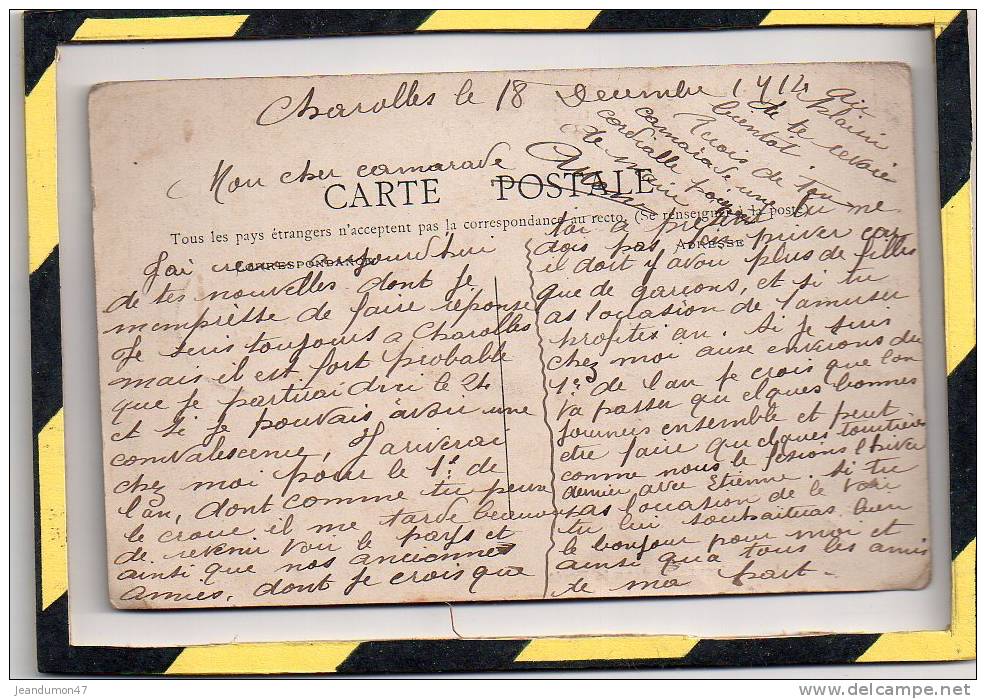 Charolles le 18 Decembre 1914
Mon cher camarade
CARTE POSTALE
Tous les pays étrangers n'acceptent pas la correspondance au recto. (Se renseigner à la poste)
CORRESPONDANCE
ADRESSE
J'ai recu aujourd'hui
de tes nouvelles dont je
m'empresse de faire réponse
Je suis toujours a Charolles
mais il est fort probable
que je partirai dici le 24
et si je pouvais avoir une
convalescence, J'ariverai
chez moi pour le 1er de
l'an, dont comme tu peux
le croire il me tarde beaucoup
de revenir voir le pays et
ainsi que nos anciennes
amies, dont je crois que
tu me
dois pas priver car
il doit y avoir plus de filles
que de garçons, et si tu
as l'occasion de t'amuser
profites an. Si je suis
chez moi aux environs du
1er de l'an je crois que l'on
va passer quelques bonnes
journees ensemble et peut
etre faire quelques
comme nous le fesions l'hiver
dernier avec Etienne. Si tu
as l'occasion de le voir
tu lui souhaiteras bien
le bonjour pour moi et
ainsi qu'a tous les amis
de ma part.
plaisir
de te revoir
bientot.
Recois de Ton
camarade une
cordialle
de main
jeandumon47
http://www.delcampe.net